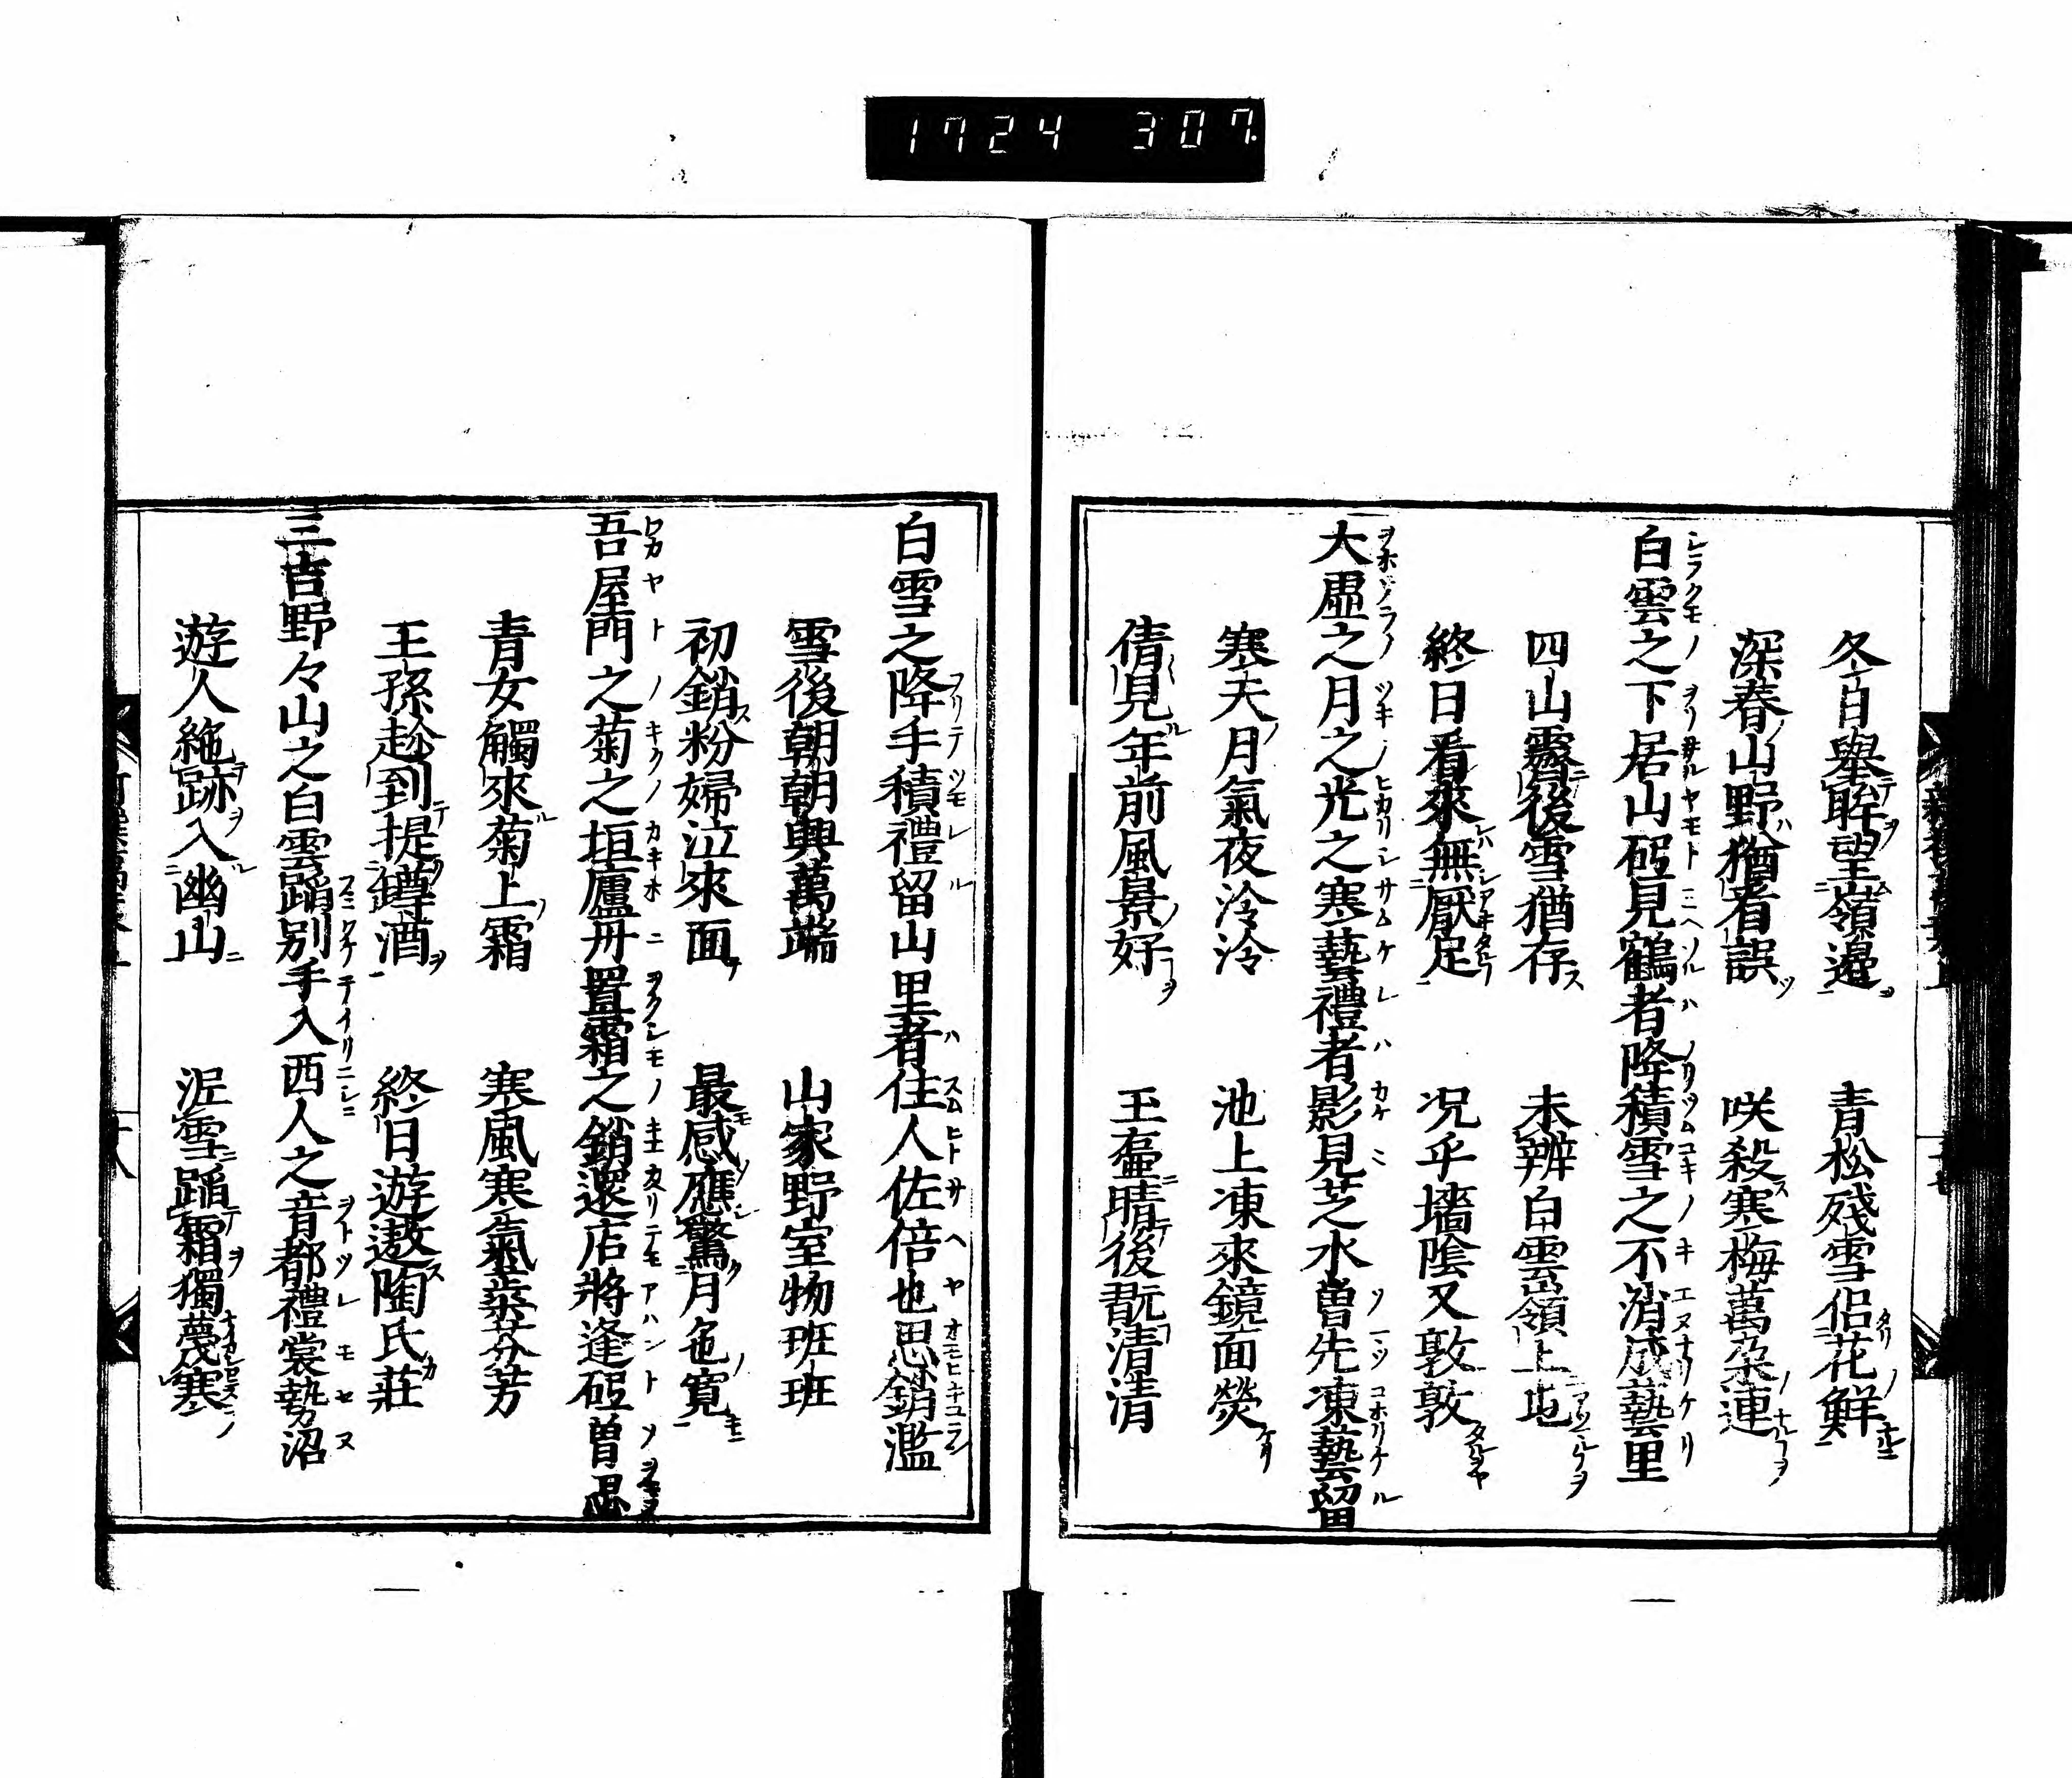 1724 307.
冬日擧眸望嶺邊　青松殘雪似花鮮
深春山野猶看誤　咲殺寒梅萬朶連
白雲之下居山砥見鶴者降積雪之不消成藝里
四山霽後雪猶存　未辨白雲嶺上屯
終日看來無厭足　況乎墻陰又敦敦
大虛之月之光之寒藝禮者影見芝水曽先凍藝留
寒天月氣夜冷冷　池上凍來鏡面熒
倩見年前風景好　玉壼晴後翫清清
白雪之降手積禮留山里者住人佐倍也思銷濫
雪後朝朝興萬端　山家野室物班班
初銷粉婦泣來面　最感應驚月色寬
吾屋門之菊之垣廬丹置霜之銷還店將逢砥曽思
青女觸來菊上霜　寒風寒氣蘂芬芳
王孫趁到提罇酒　終日遊遨陶氏莊
三吉野々山之白雲蹈別手入西人之音都禮裳勢沼
遊人絶跡入幽山　泥雪蹈霜獨蔑寒